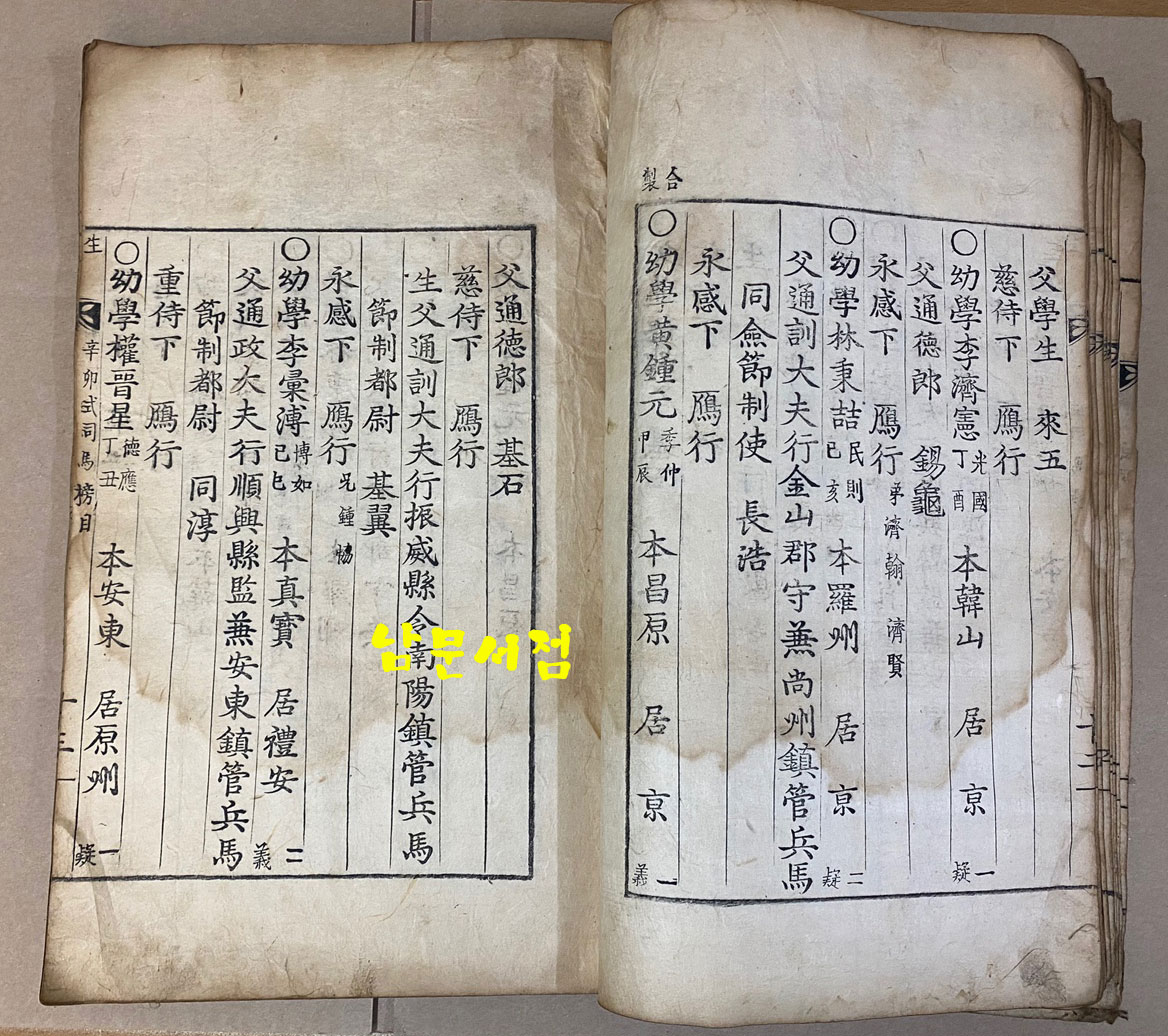 父學生 來五
慈侍下 鴈行
○幼學李濟憲 光國 丁酉 本韓山 居京 一疑
父通德郎 錫龜
永感下 鴈行 弟濟翰 濟賢
○幼學林秉喆 民則 己亥 本羅州 居京 二疑
父通訓大夫行金山郡守兼尚州鎮管兵馬
同僉節制使 長浩
永感下 鴈行
合製
○幼學黃鍾元 季仲 甲辰 本昌原 居京 一義
父通德郎 基石
慈侍下 鴈行
生父通訓大夫行振威縣令南陽鎮管兵馬
節制都尉 基翼
永感下 鴈行 兄鍾
○幼學李彙溥 博如 己巳 本真寶 居禮安 二義
父通政大夫行順興縣監兼安東鎮管兵馬
節制都尉 同淳
重侍下 鴈行
○幼學權晉星 德應 丁丑 本安東 居原州 一疑
生 辛卯式司馬榜目
남문서점